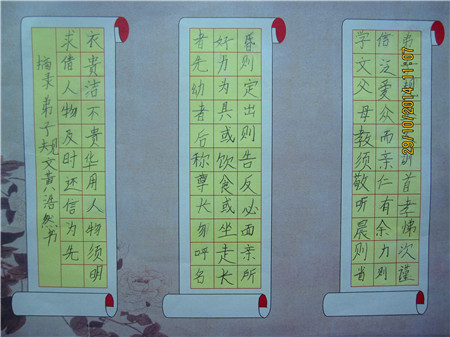 训首孝悌次谨
信泛爱众而亲仁有余力则
字文父母教须敬听晨则省
昏则定出则告反必面亲所
好力为具或饮食或坐走长
者先幼者后称尊长勿呼名
衣贵洁不贵华用人物须明
求借人物及时还信为先
摘录弟子规文黄浩然书
29/10/2014 11:07